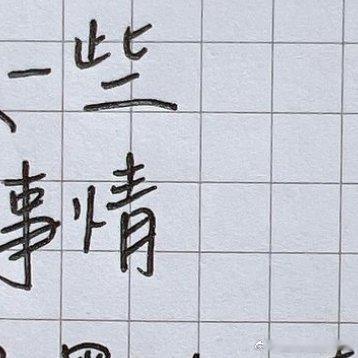 一些
事情